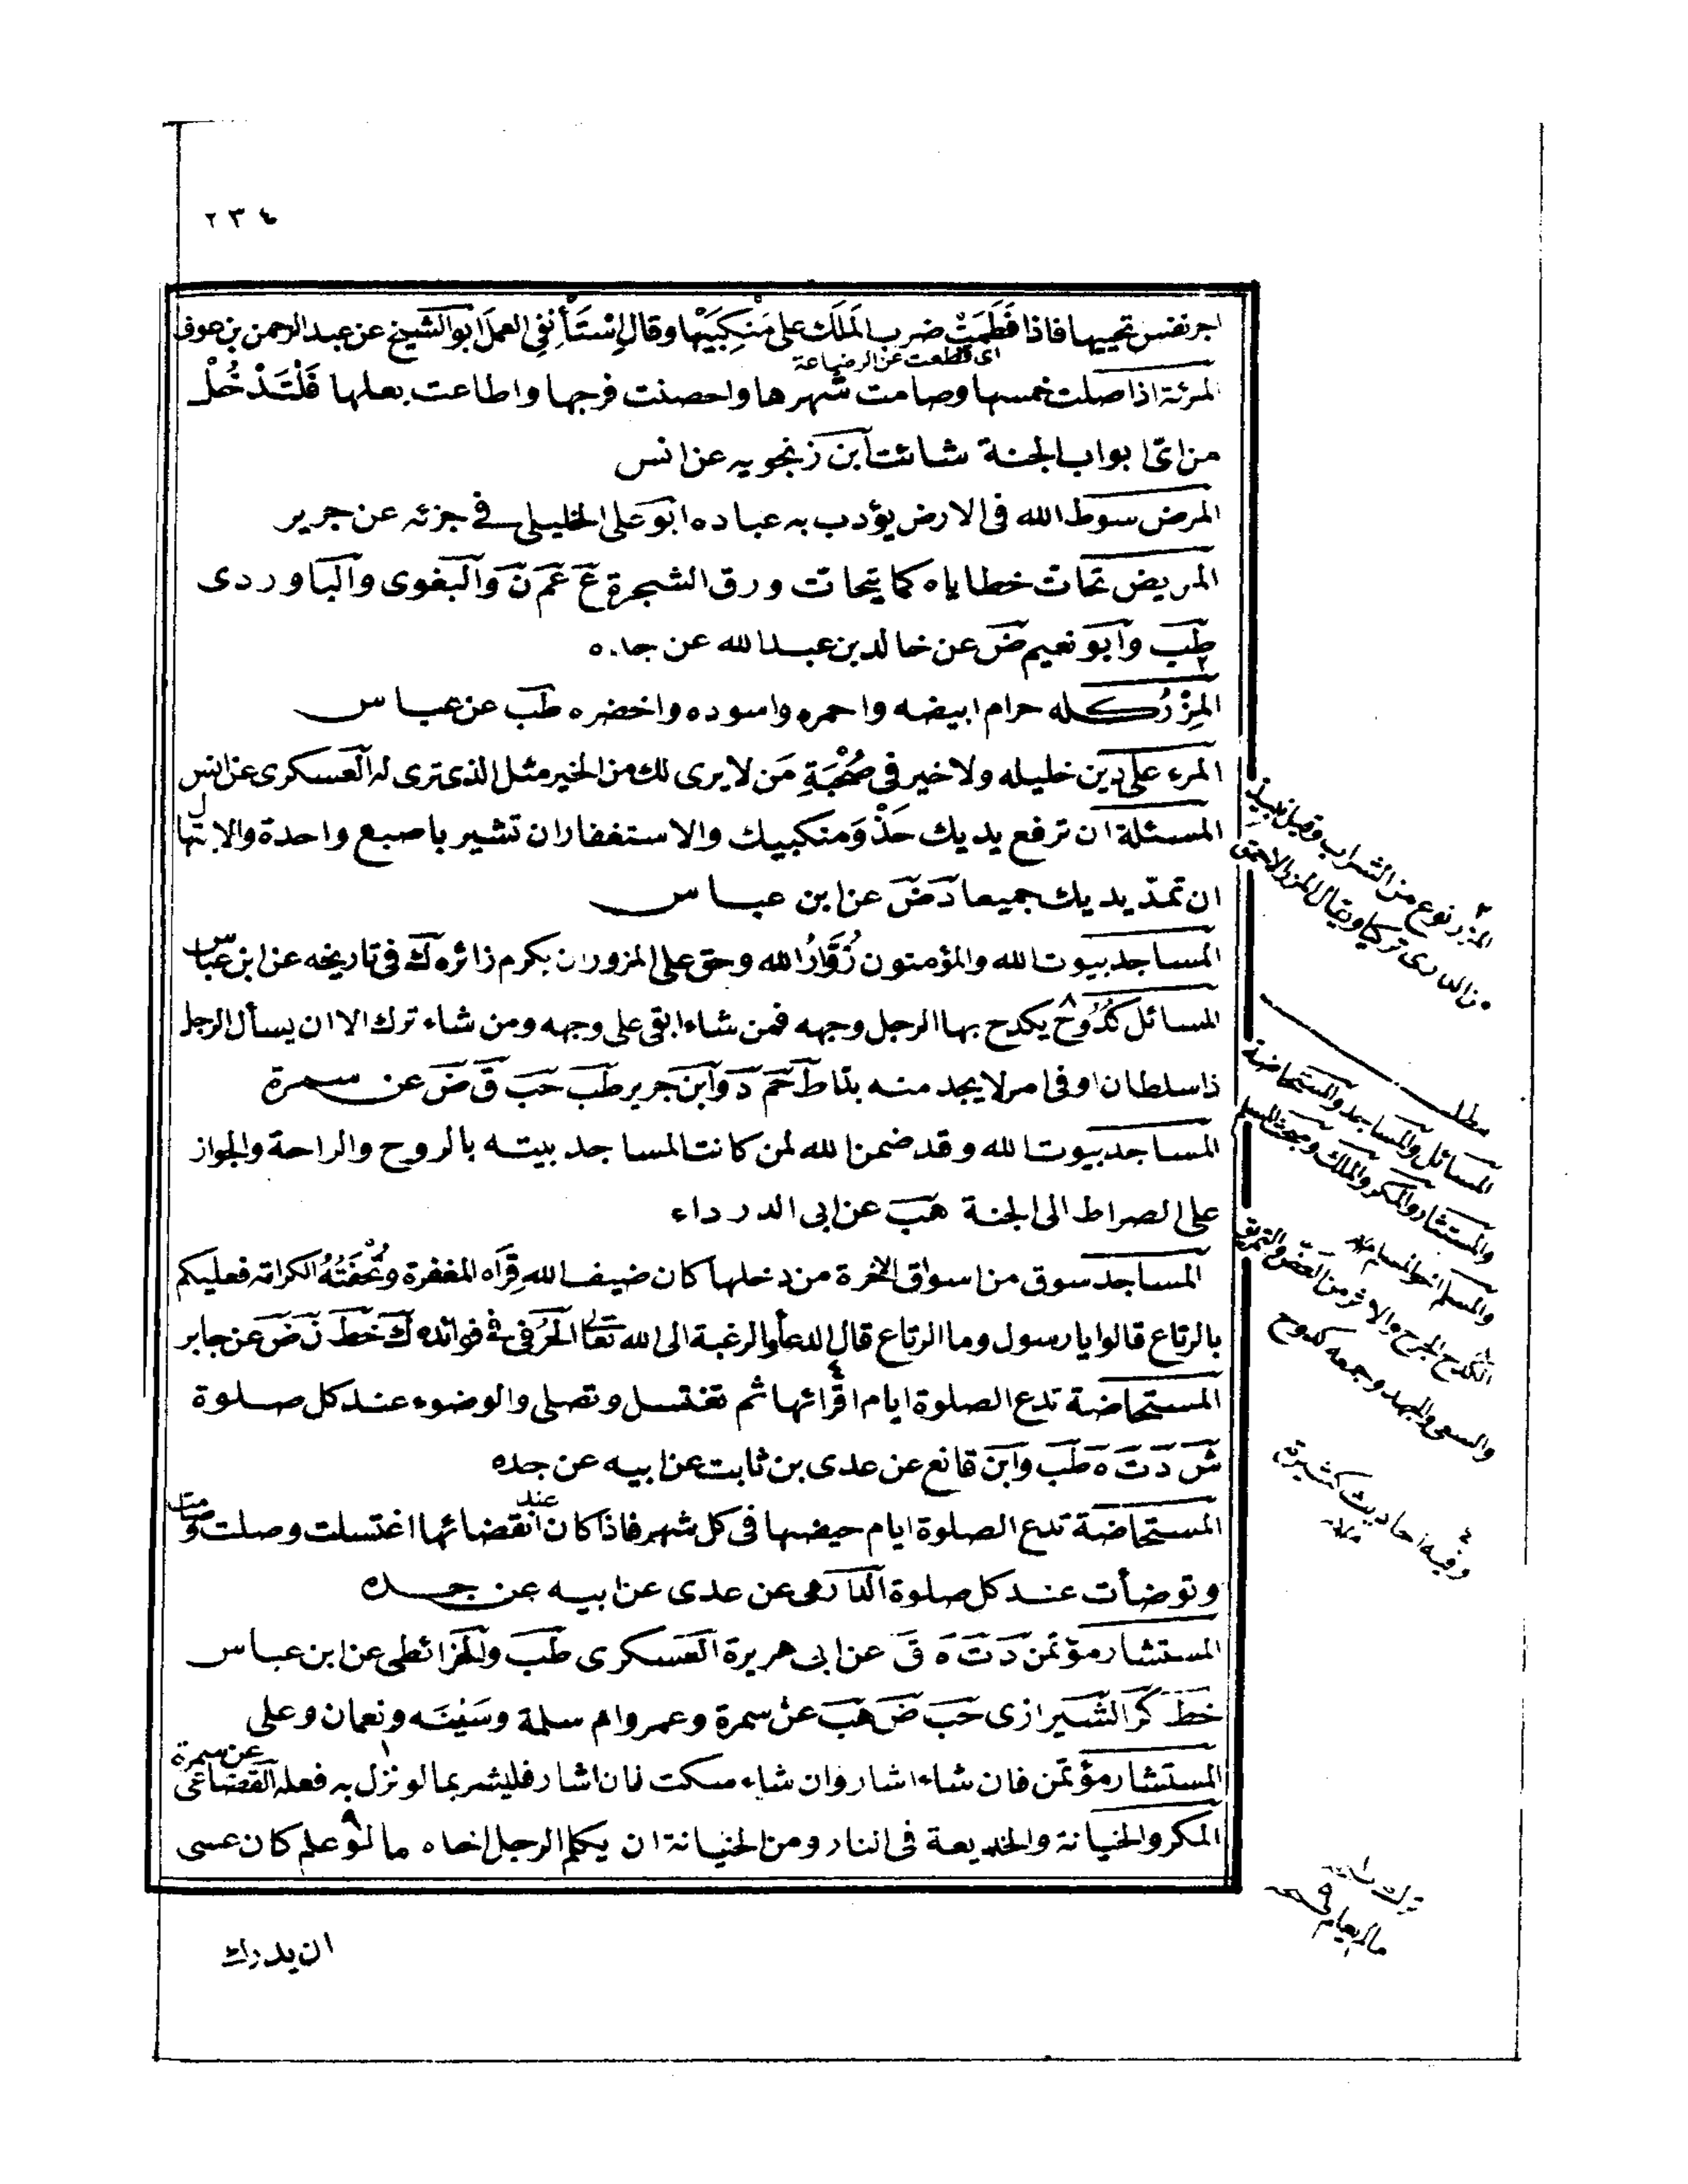 ٢٣٤
اجر نفس تحييها فاذا فَطَمَتْ ضرب المَلَك على مَنْكِبَيْها وقال اِسْتَأنِفي العمل ابو الشيخ عن عبد الرحمن بن عوف
اى قطعت عن الرضاعة
المرئة اذا صلت خمسها وصامت شهرها واحصنت فرجها واطاعت بعلها فَلْتَدْخُلْ
من اىّ ابواب الجنة شائت ابن زنجويه عن انس
المرض سوط الله فى الارض يؤدب به عباده ابو على الخليلى فى جزئه عن جرير
المريض تحات خطاياه كما يتحات ورق الشجرة ع عم ن والبغوى والباوردى
طب وابو نعيم ض عن خالد بن عبد الله عن جده
المِزْرُ كله حرام ابيضه واحمره واسوده واخضره طب عن عباس
المرء على دين خليله ولا خير فى صُحْبَةِ مَن لا يرى لك من الخير مثل الذى ترى له العسكرى عن انس
المسئلة ان ترفع يديك حَذْوَ منكبيك والاستغفار ان تشير باصبع واحدة والابتهال
ان تمدّ يديك جميعا د ض عن ابن عباس
المساجد بيوت الله والمؤمنون زُوَّارُ الله وحق على المزور ان يكرم زائره ك فى تاريخه عن ابن عباس
المسائل كُدُوحٌ يكدح بها الرجل وجهه فمن شاء ابقى على وجهه ومن شاء ترك الا ان يسأل الرجل
ذا سلطان او فى امر لا يجد منه بدّا ط حم د وابن جرير طب حب ق ض عن سمرة
المساجد بيوت الله وقد ضمن الله لمن كانت المساجد بيته بالروح والراحة والجواز
على الصراط الى الجنة هب عن ابى الدرداء
المساجد سوق من اسواق الاخرة من دخلها كان ضيف الله قِرَاه المغفرة وتُحْفَتُهُ الكرامة فعليكم
بالرتاع قالوا يا رسول وما الرتاع قال الدعاء والرغبة الى الله تعالى الحرفى فى فوائده ك خط ن ض عن جابر
المستحاضة تدع الصلوة ايام اقرائها ثم تغتسل وتصلى والوضوء عند كل صلوة
ش د ت ه طب وابن قانع عن عدى بن ثابت عن ابيه عن جده
المستحاضة تدع الصلوة ايام حيضها فى كل شهر فاذا كان عند انقضائها اغتسلت وصلت وصامت
وتوضأت عند كل صلوة الدارمى عن عدى عن ابيه عن جده
المستشار مؤتمن د ت ه ق عن ابى هريرة العسكرى طب والخرائطى عن ابن عباس
خط كر الشيرازى حب ض هب عن سمرة وعمر وام سلمة وسفينه ونعمان وعلى
المستشار مؤتمن فان شاء اشار وان شاء سكت فان اشار فليشر بما لو نزل به فعله القضاعى عن سمرة
المكر والخيانة والخديعة فى النار ومن الخيانة ان يكلم الرجل اخاه ما لو علم كان عسى
ان يدرك
المزر نوع من الشراب
مطلب
المسائل والمساجد والمستحاضة
والمستشار والمكر والملك
الكدح الجرح والاثر من العض
والسعى والجهد وجمعه كدوح
وفيه احاديث كثيرة